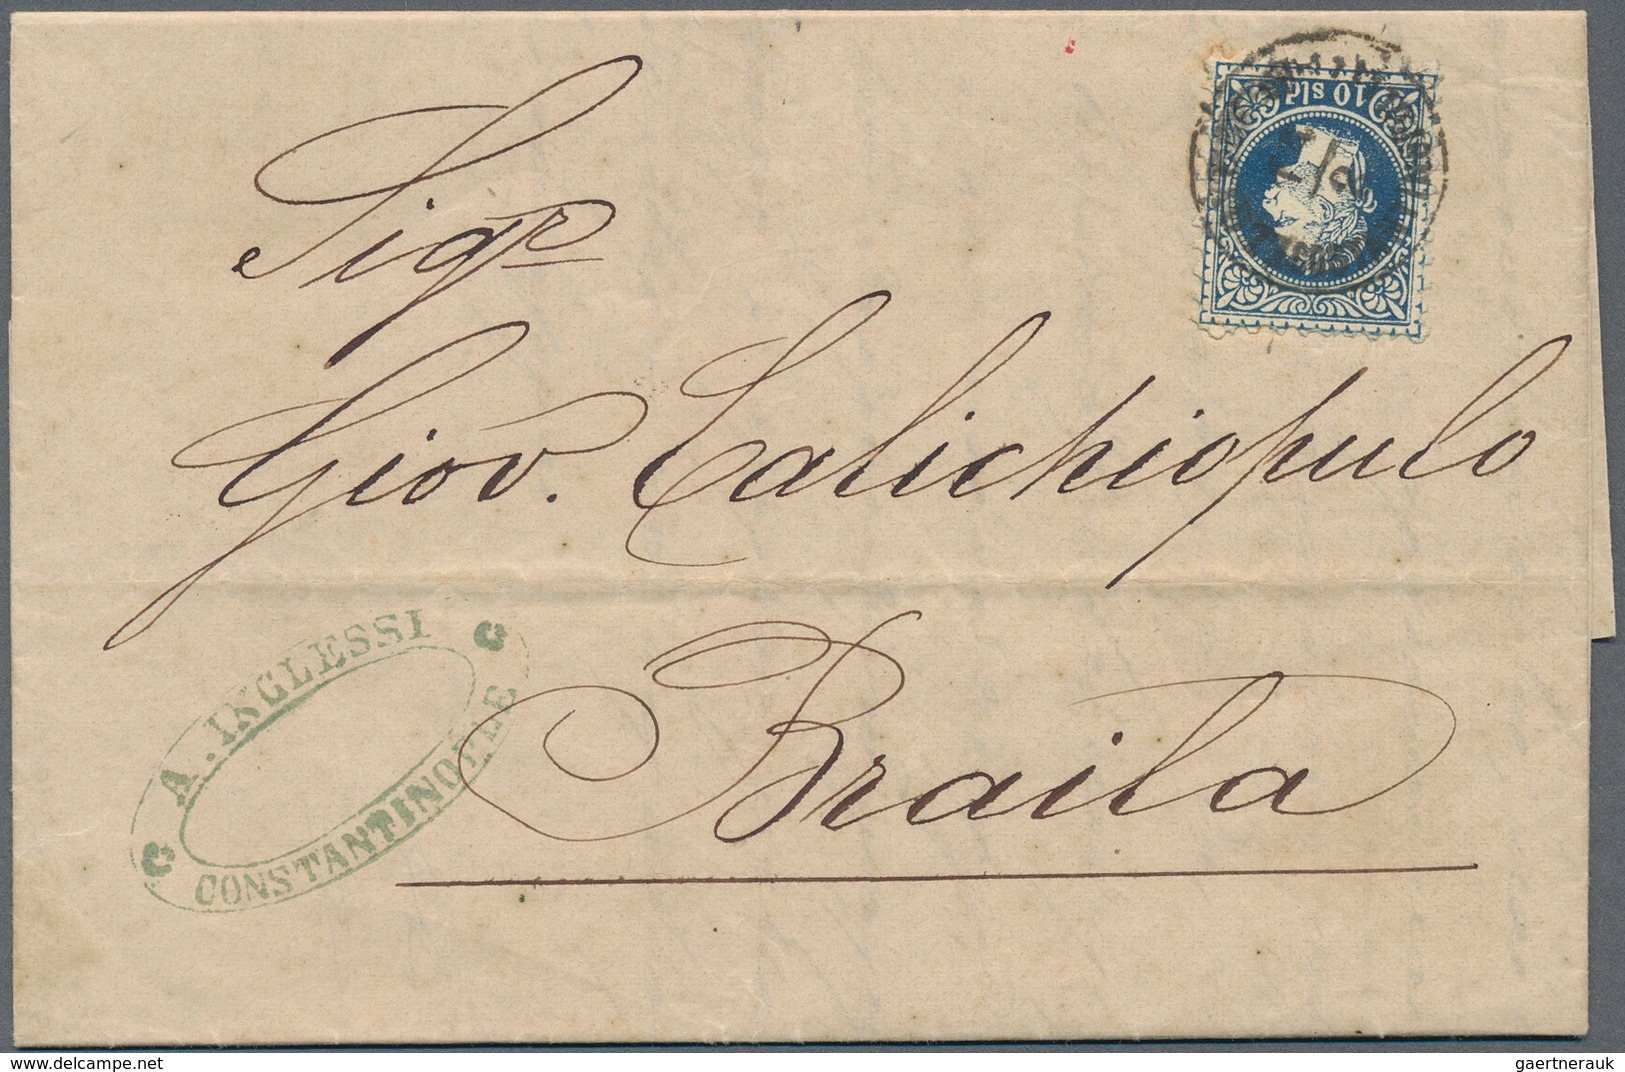 10 sld
Sigr
Giov. Calichiopulo
Braila
A. INGLESSI
CONSTANTINOPLE
delcampe.net
gaertnerauk